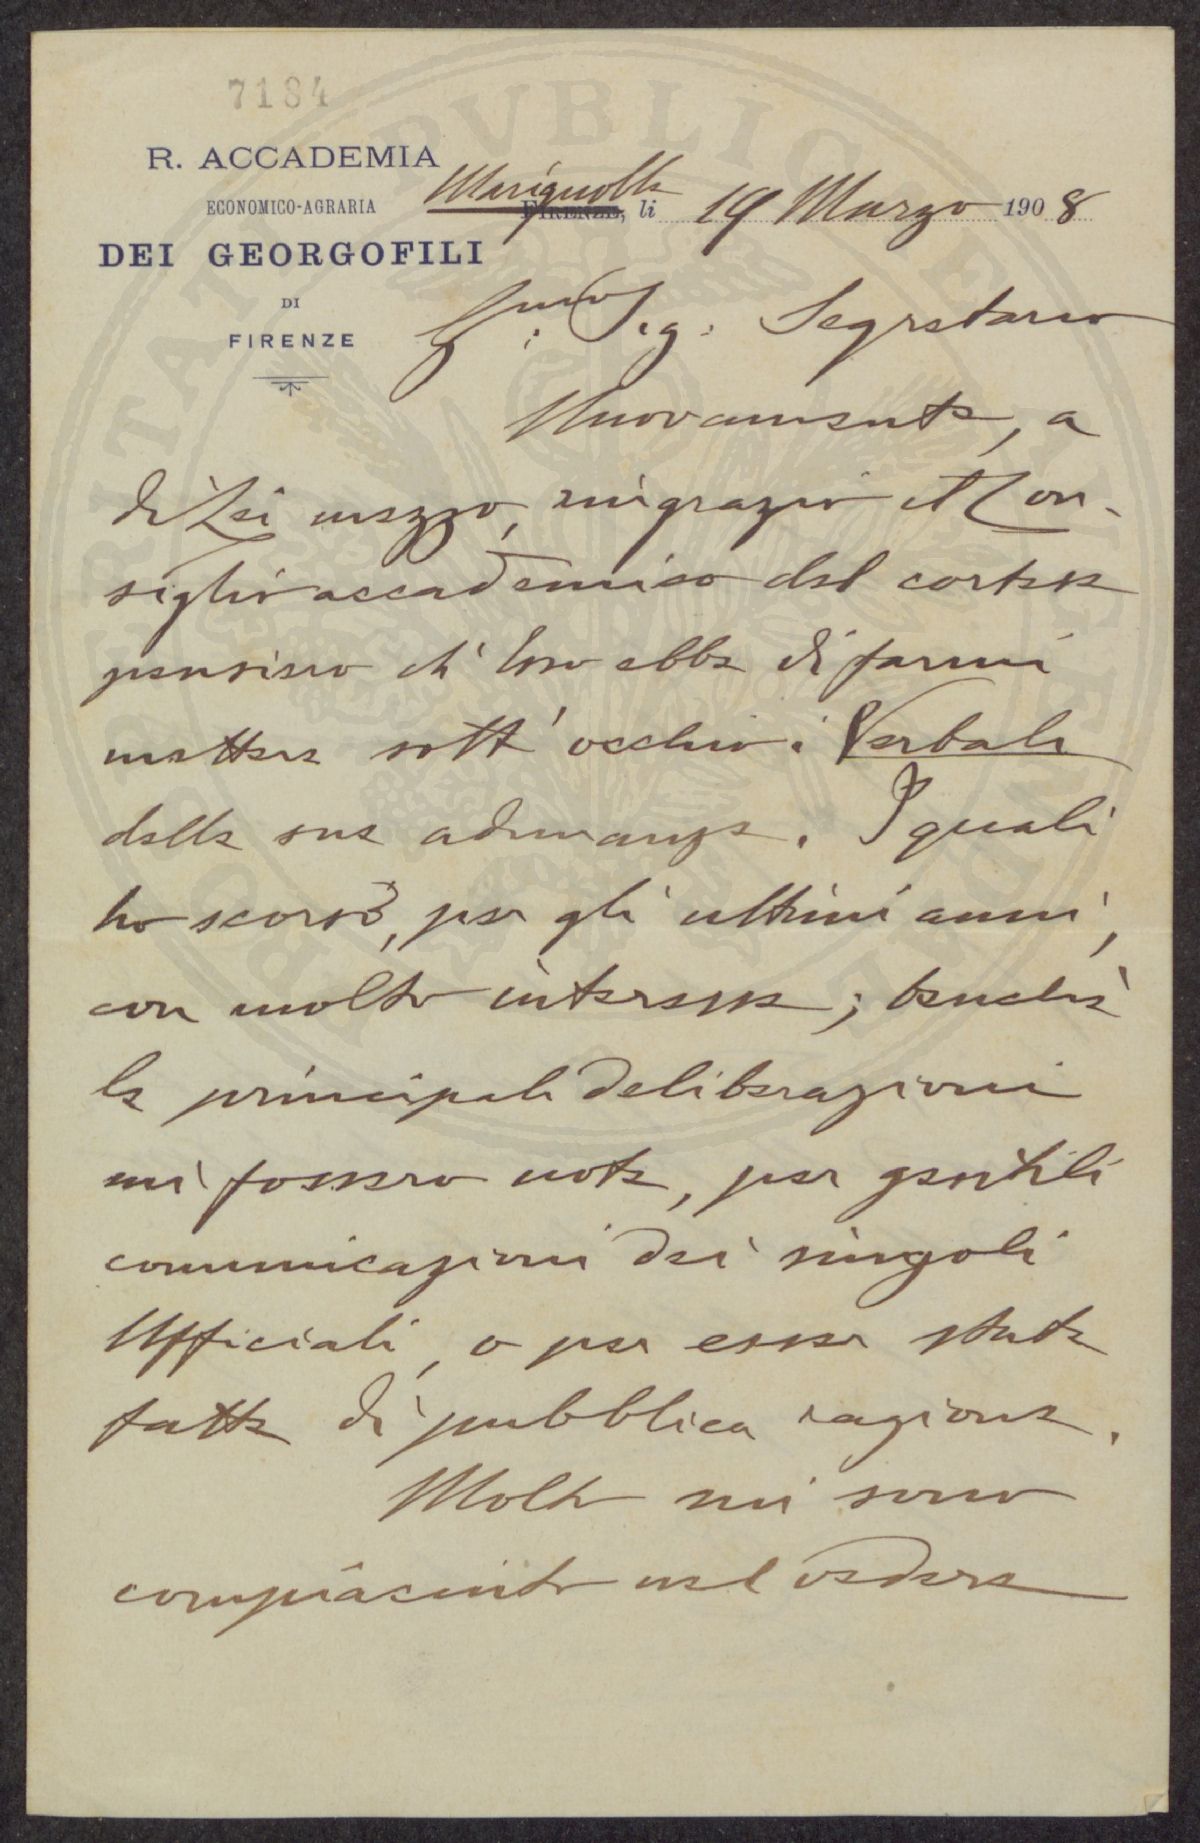 7184
R. ACCADEMIA
ECONOMICO-AGRARIA
DEI GEORGOFILI
DI
FIRENZE
Marignolle
FIRENZE, li 19 Marzo 1908
Sig: Segretario
Nuovamente, a
di Lei mezzo, ringrazio il Con-
siglio accademico del cortese
pensiero ch'Esso ebbe di farmi
mettere sott'occhio i Verbali
delle sue adunanze. I quali
ho scorso, per gli ultimi anni,
con molto interesse; benchè
le principali deliberazioni
mi fossero note, per gentili
comunicazioni dei singoli
Ufficiali, o per esser state
fatte di pubblica ragione.
Molto mi sono
compiaciuto nel vedere